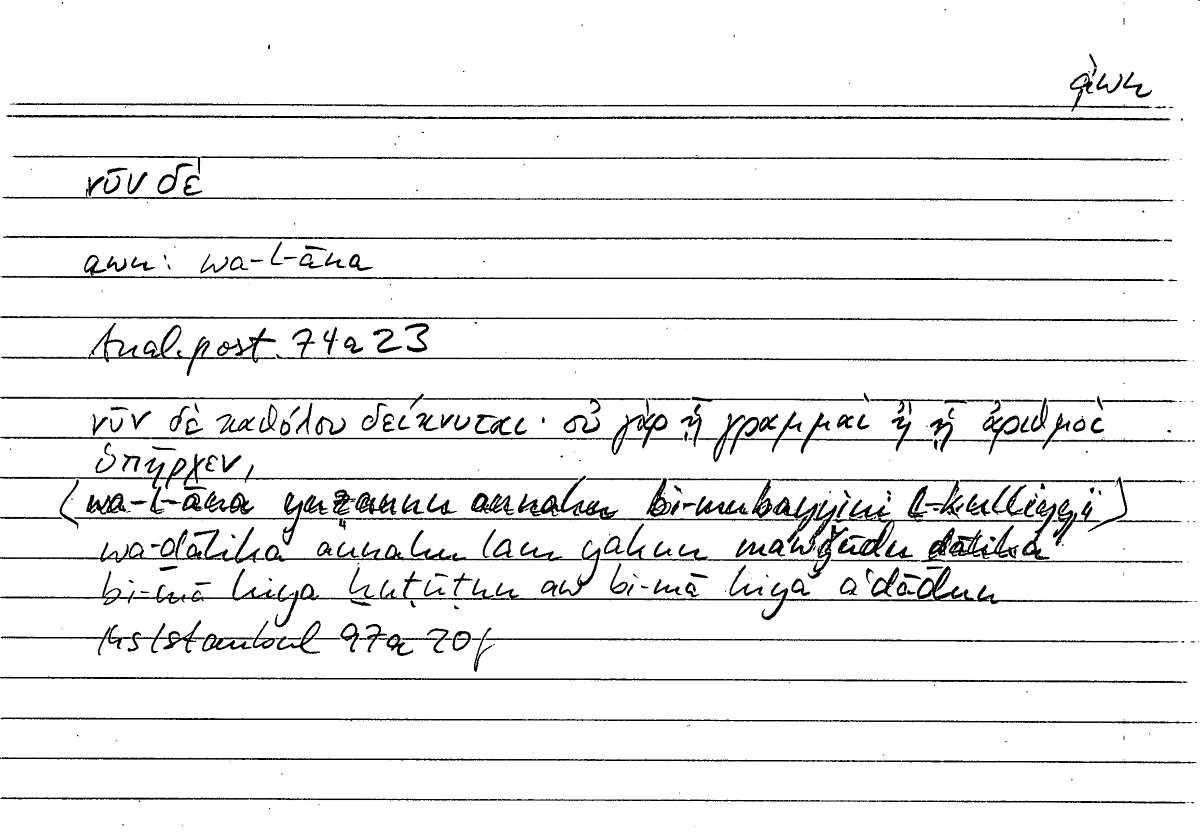 ʾāwn
νῦν δέ
awn: wa-l-āna
Anal. post. 74a23
νῦν δὲ καθόλου δείκνυται· οὐ γὰρ ᾗ γραμμαὶ ἢ ᾗ ἀριθμοὶ
ὑπῆρχεν,
(wa-l-āna yuẓannu annahu bi-mubayyini l-kulliyyi)
wa-ḏālika annahu lam yakun mawǧūdu ḏālika
bi-mā hiya ḫuṭūṭun aw bi-mā hiya aʿdādun
Ms Istanbul 97a 20f